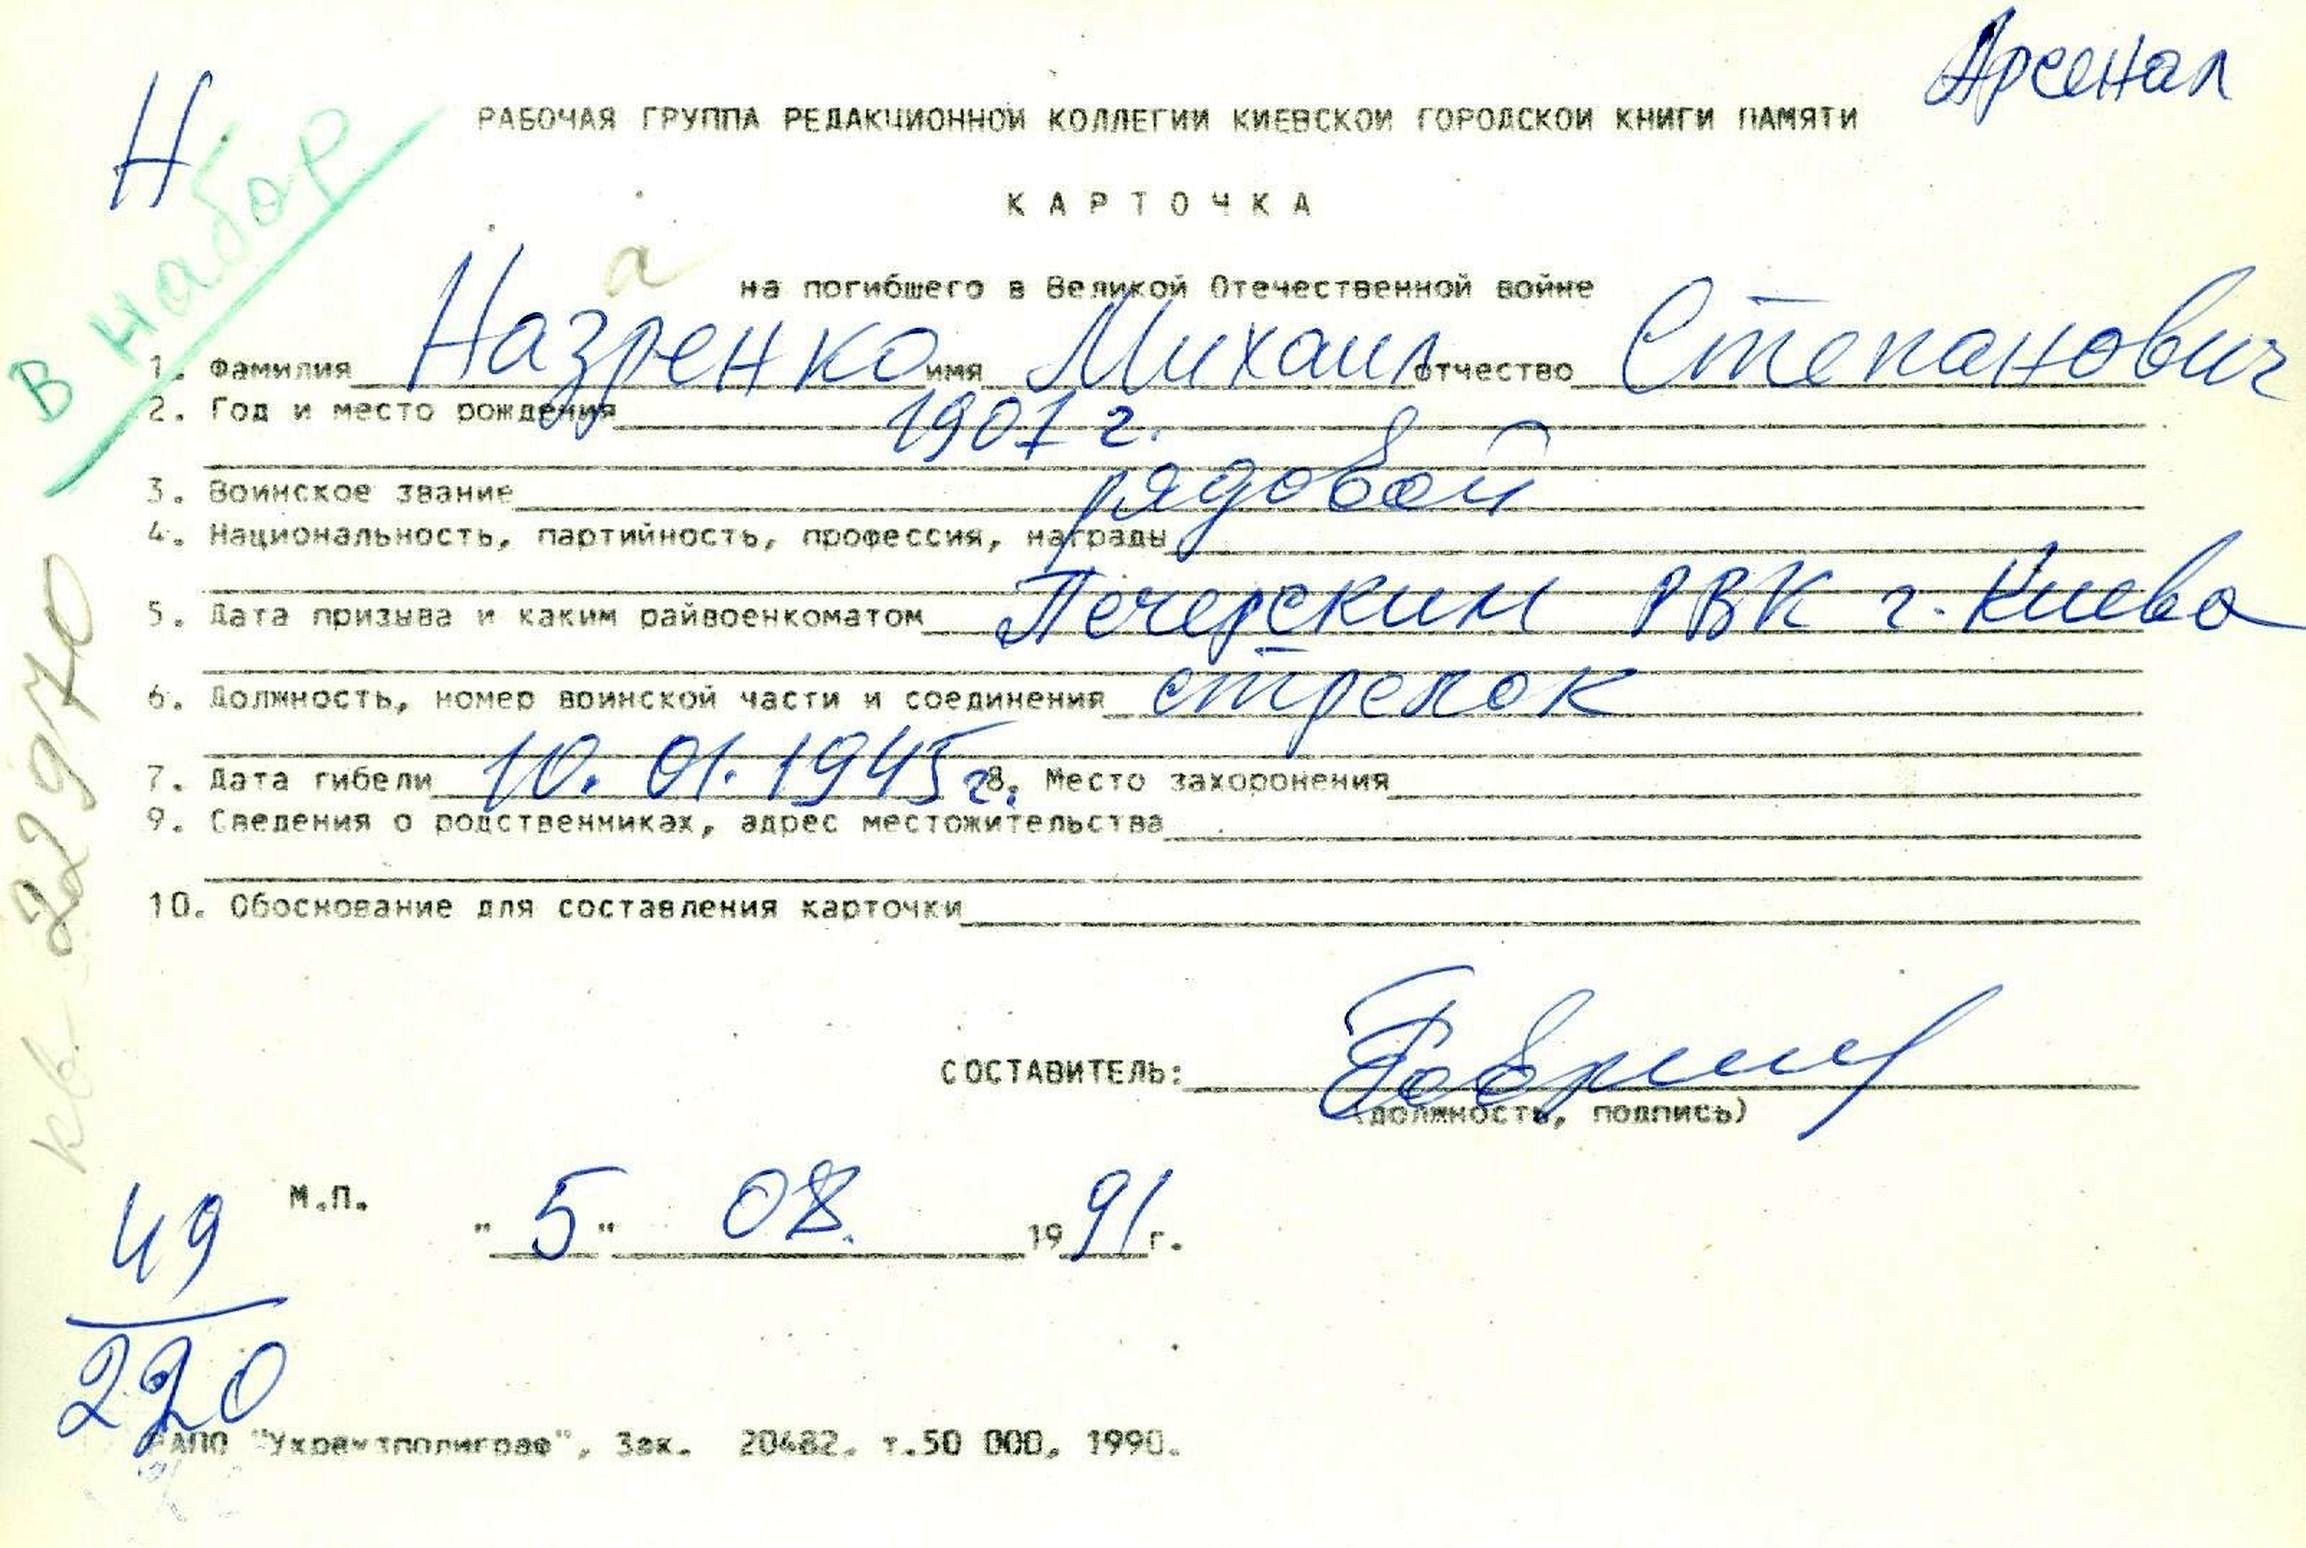 Арсенал
Н.
РАБОЧАЯ ГРУППА РЕДАКЦИОННОЙ КОЛЛЕГИИ КИЕВСКОЙ ГОРОДСКОЙ КНИГИ ПАМЯТИ
В набор
КАРТОЧКА
а
на погибшего в Великой Отечественной войне
1. Фамилия Назренко имя Михаил отчество Степанович
2. Год и место рождения 1907 г.
3. Воинское звание рядовой
4. Национальность, партийность, профессия, награды
5. Дата призыва и каким райвоенкоматом Печерским РВК г. Киева
6. Должность, номер воинской части и соединения стрелок
7. Дата гибели 10.01.1945 г. 8. Место захоронения
9. Сведения о родственниках, адрес местожительства
10. Обоснование для составления карточки
кв 22970
СОСТАВИТЕЛЬ:
(должность, подпись)
М.П.
"5" 08. 1991 г.
49
220
РАПО "Укрвузполиграф", Зак. 20482. т.50 000, 1990.